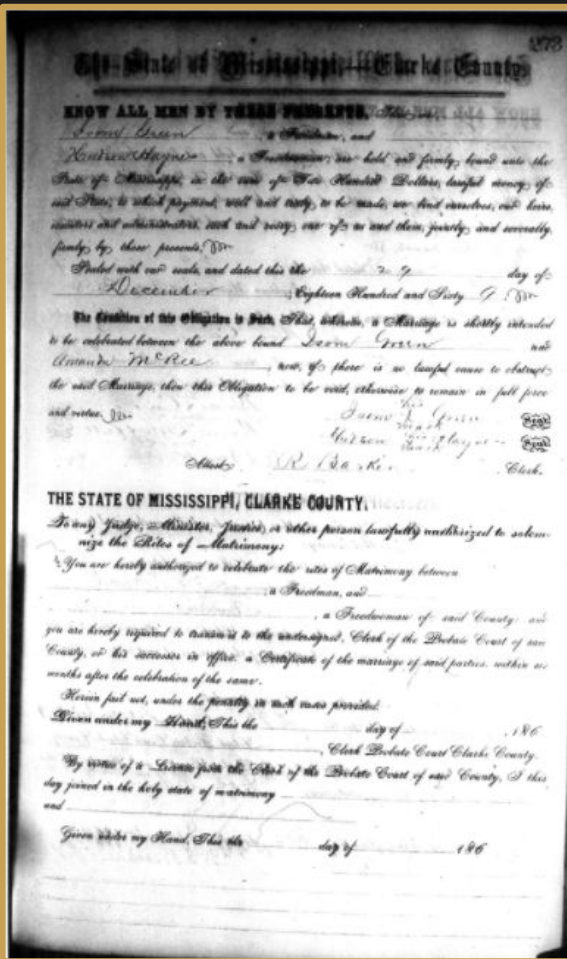 273
The State of Mississippi, Clarke County
KNOW ALL MEN BY THESE PRESENTS, That we
Isom Green, a Freedman, and
Haynes, a Freedwoman, are held and firmly bound unto the
State of Mississippi, in the sum of Two Hundred Dollars, lawful money of
said State, to which payment, well and truly to be made, we bind ourselves, our heirs,
executors and administrators, each and every one of us and them, jointly and severally,
firmly by these presents,
Sealed with our seals, and dated this the 29 day of
December, Eighteen Hundred and Sixty 9.
The Condition of this Obligation is Such, That, whereas, a Marriage is shortly intended
to be celebrated between the above bound Isom Green and
Amanda McRee, now, if there is no lawful cause to obstruct
the said Marriage, then this Obligation to be void, otherwise to remain in full force
and virtue.
his
Isom X Green Seal
mark
his
Haynes Seal
mark
Attest, R Clerk.
THE STATE OF MISSISSIPPI, CLARKE COUNTY.
To any Judge, Minister, Justice, or other person lawfully authorized to solem-
nize the Rites of Matrimony:
You are hereby authorized to celebrate the rites of Matrimony between
, a Freedman, and
, a Freedwoman of said County: and
you are hereby required to transmit to the undersigned, Clerk of the Probate Court of said
County, or his successor in office, a Certificate of the marriage of said parties, within six
months after the celebration of the same.
Herein fail not, under the penalty in such cases provided.
Given under my Hand, This the day of , 186
, Clerk Probate Court Clarke County.
By virtue of a License from the Clerk of the Probate Court of said County, I this
day joined in the holy state of matrimony
and
Given under my Hand, This the day of 186